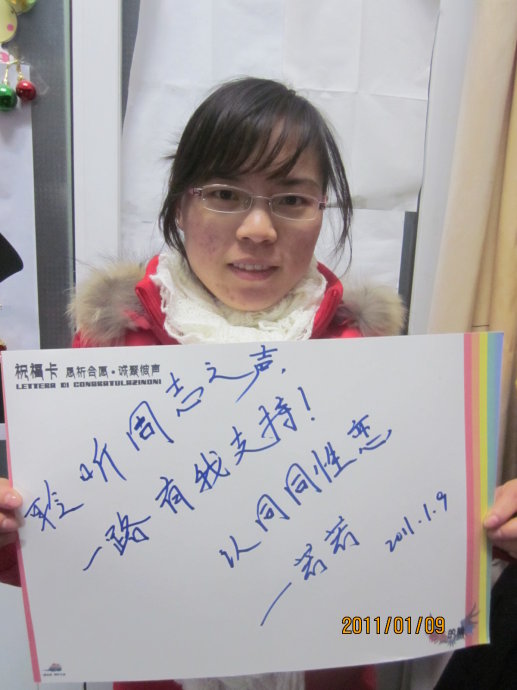 祝福卡 恩祈合愿·诚聚彼声
LETTERA DI CONGRATULAZINONI
聆听同志之声，
一路有我支持！
认同同性恋
—若若
2011.1.9
2011/01/09